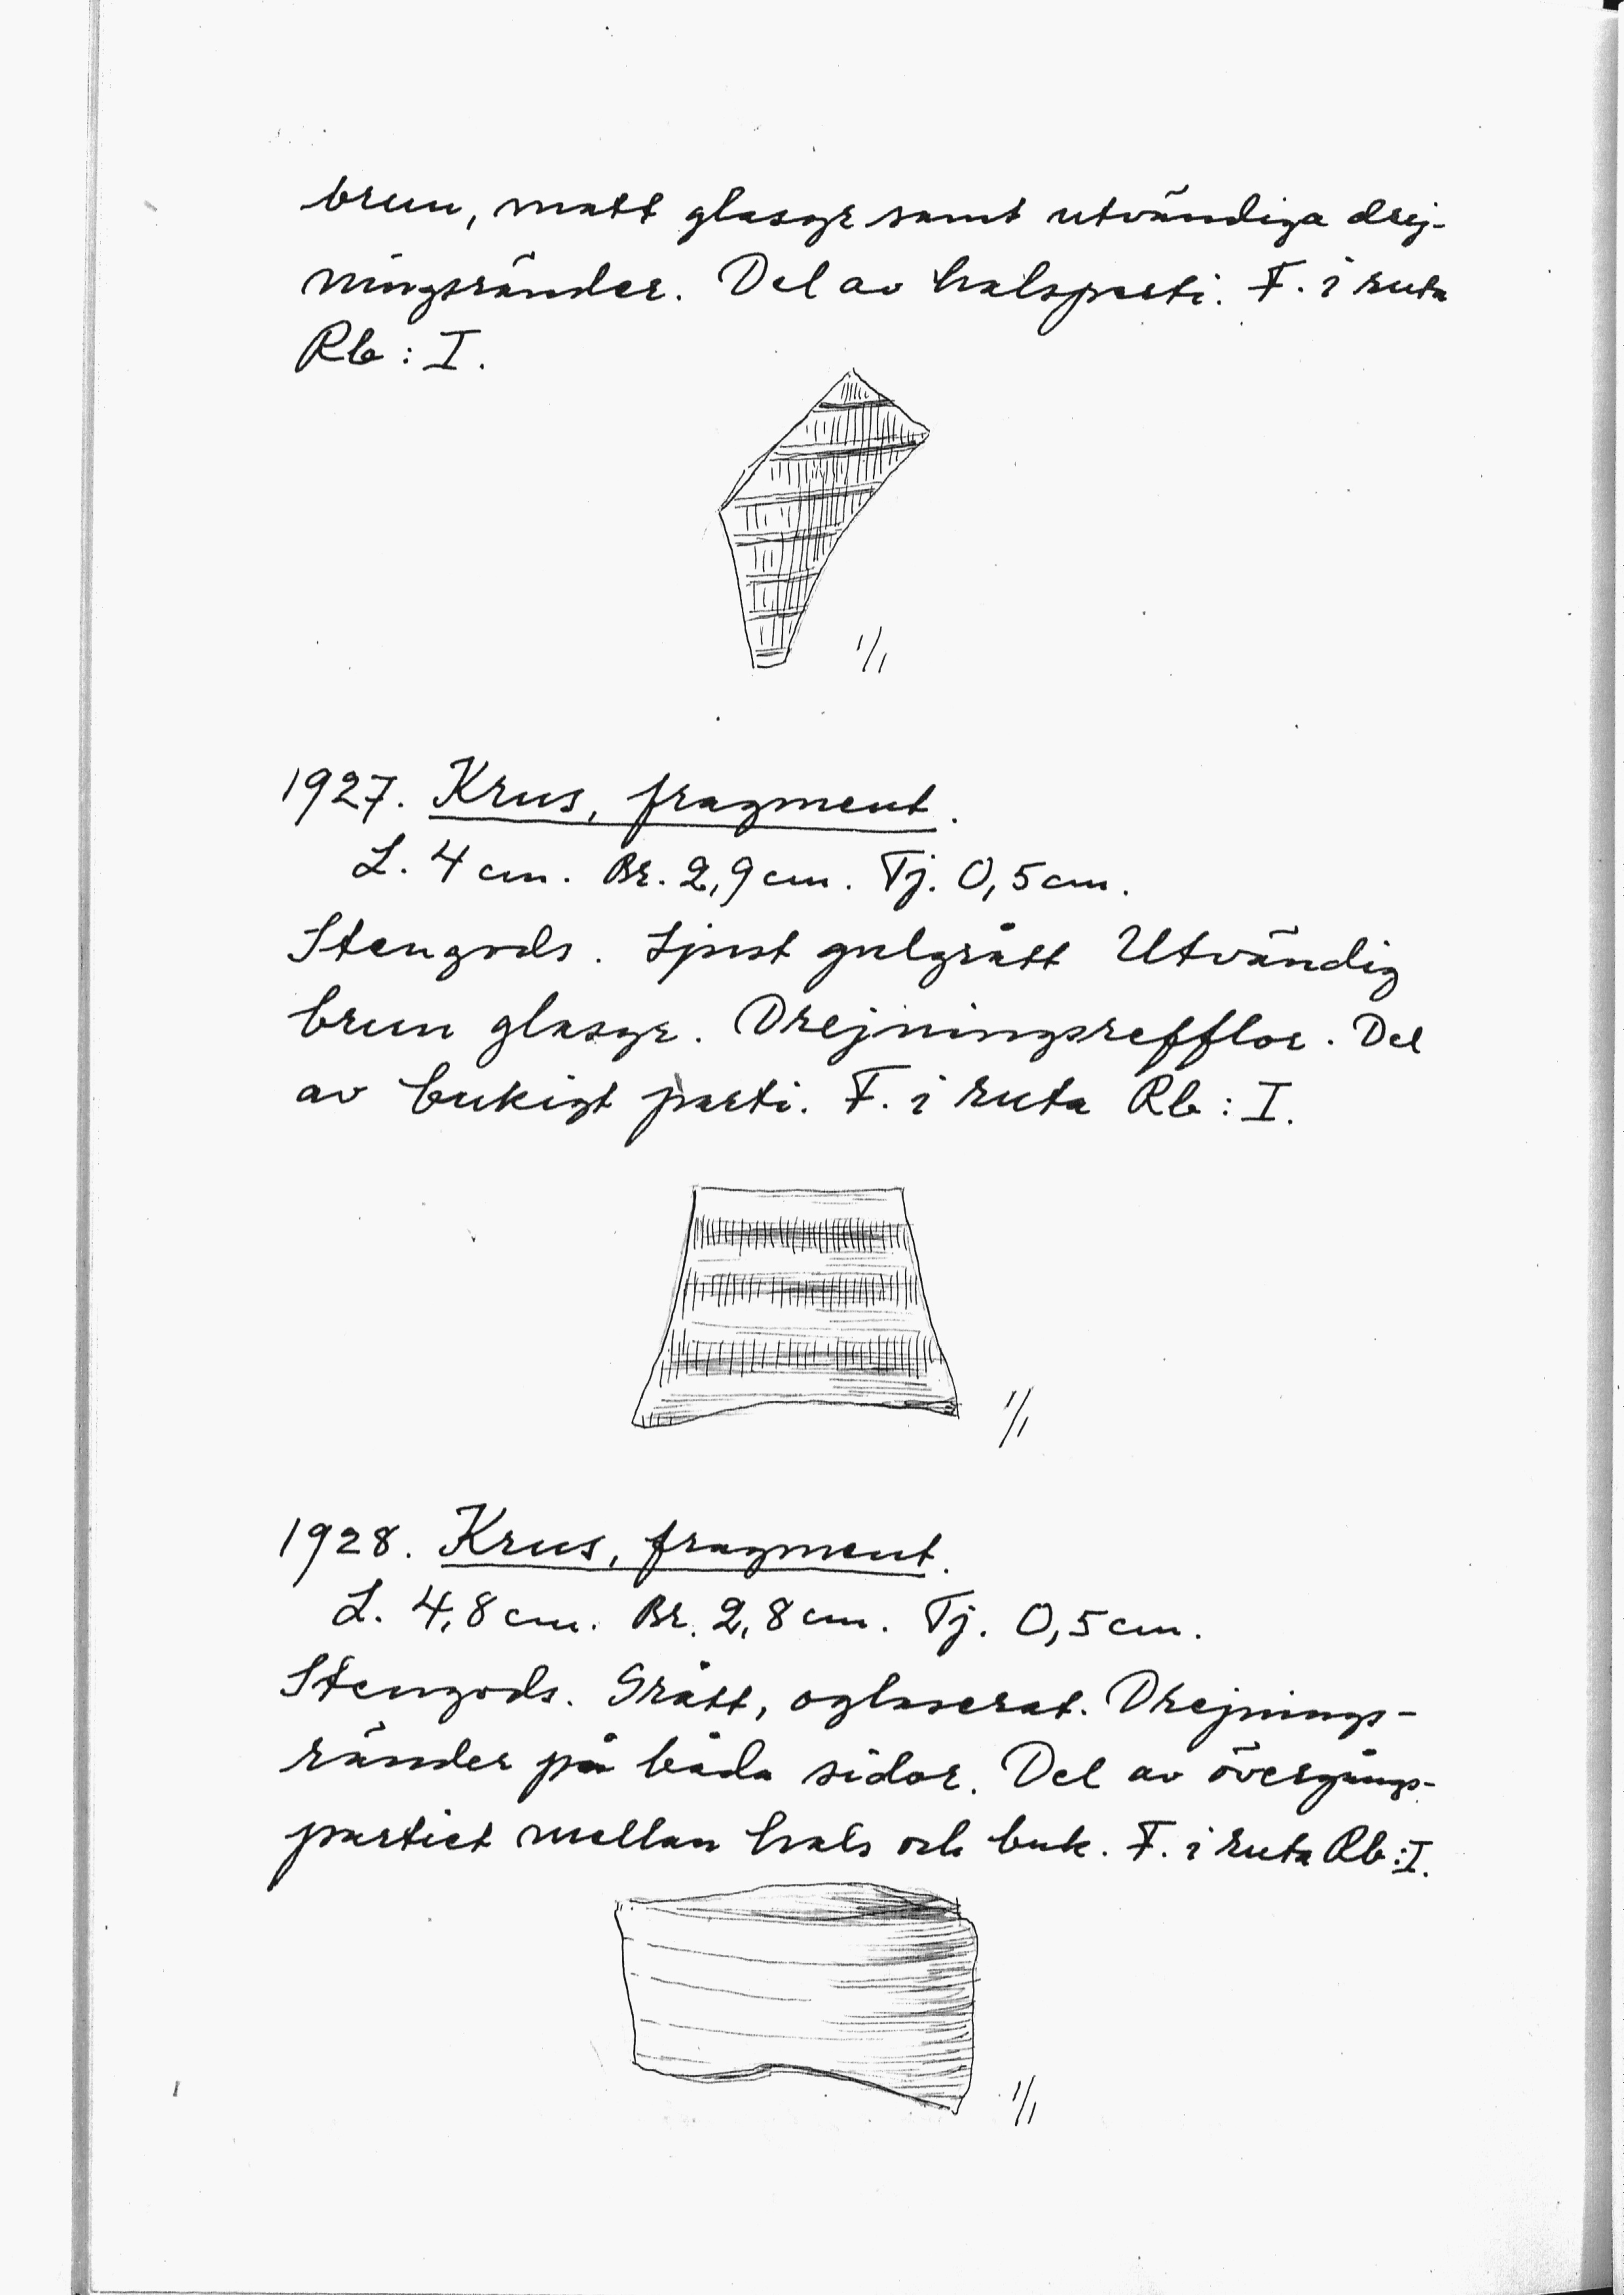 brun, matt glasyr samt utvändiga drej-
ningsränder. Del av halsparti. F. i ruta
Rb : I.
1/1
1927. Krus, fragment.
L. 4 cm. Br. 2,9 cm. Tj. 0,5 cm.
Stengods. Ljust gulgrått Utvändig
brun glasyr. Drejningsrefflor. Del
av bukigt parti. F. i ruta Rb : I.
1/1
1928. Krus, fragment.
L. 4,8 cm. Br. 2,8 cm. Tj. 0,5 cm.
Stengods. Grått, oglaserat. Drejnings-
ränder på båda sidor. Del av övergångs-
partiet mellan hals och buk. F. i ruta Rb : I.
1/1